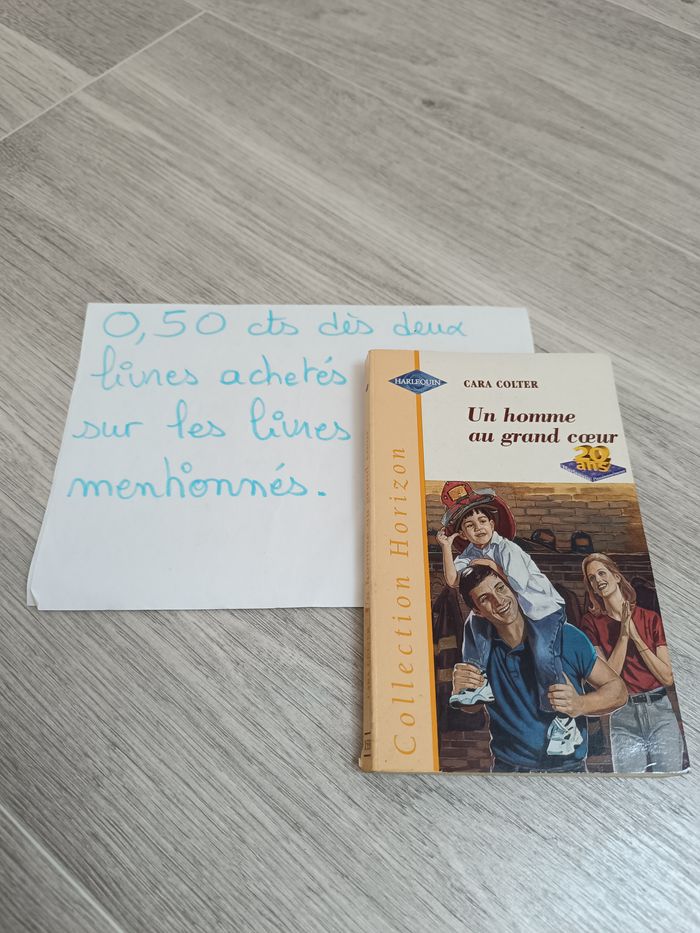 0,50 cts dès deux
livres achetés
sur les livres
mentionnés.
HARLEQUIN
CARA COLTER
Un homme
au grand cœur
20
ans
Collection Horizon